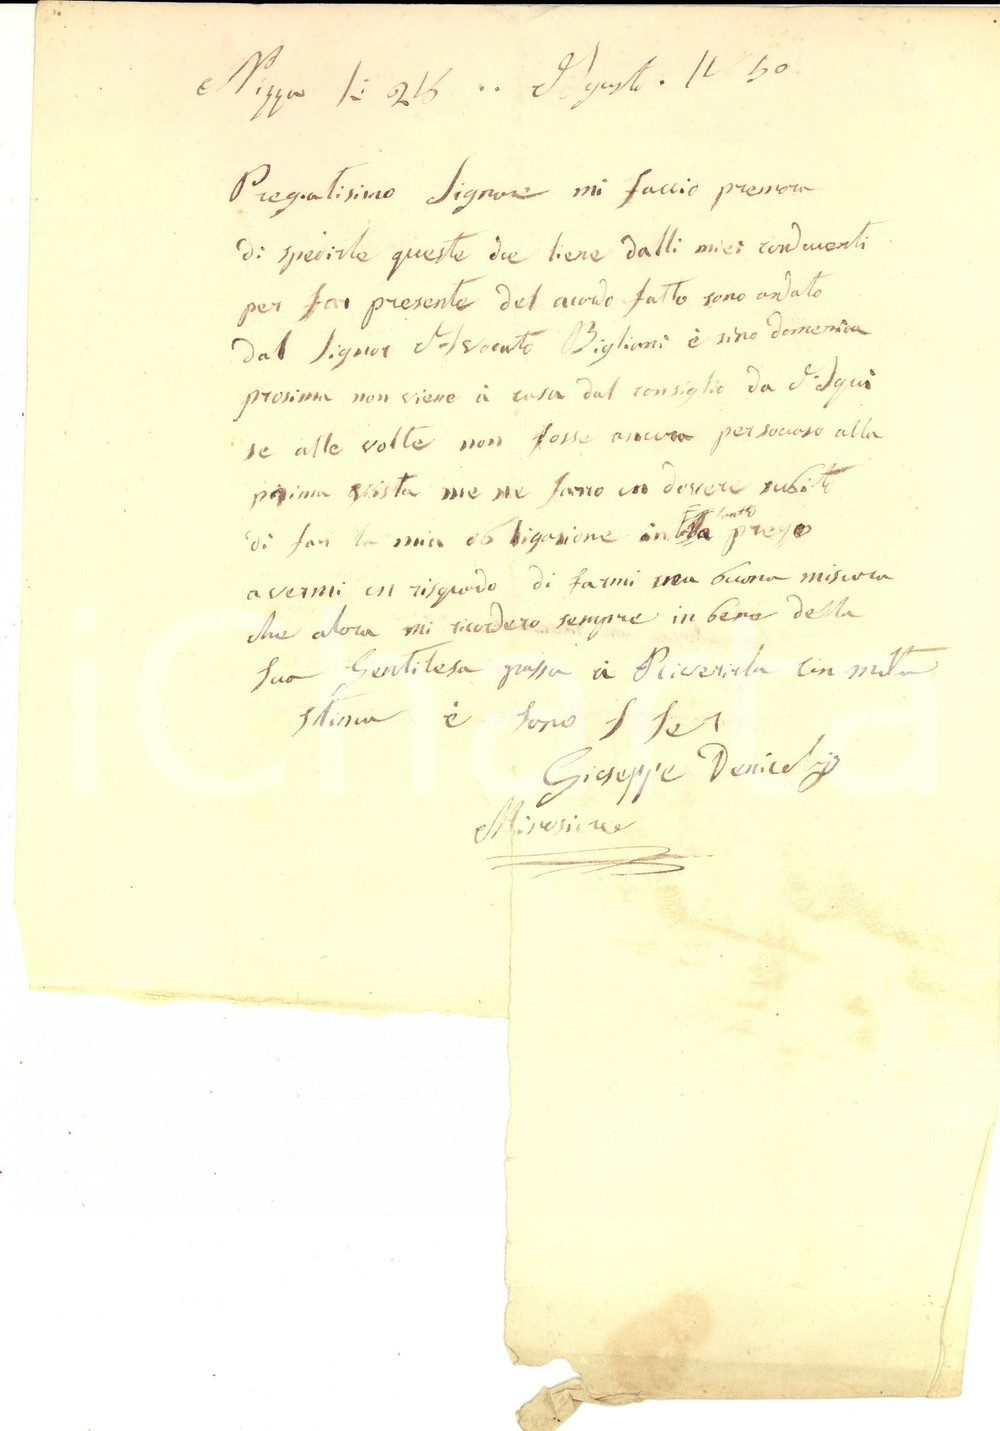 Nizza li 25 .. Agosto . 1850
Pregiatisimo Signore mi faccio premora
di spedirle queste due liene dalli miei conducenti
per far presente del acordo fatto sono andato
dal Signor Avocato Bigliani è sino domenica
prosima non viene à casa dal consiglio da Aqui
se alle volte non fosse ancora persoaso alla
prima vista me ne farro un dovere subito
di far la mia obligazione prego
avermi un risguardo di farmi una buona miscora
che alora mi ricordero sempre in bene della
Sua Gentilesa passa à Riverirla con molta
stima è sono
Giuseppe